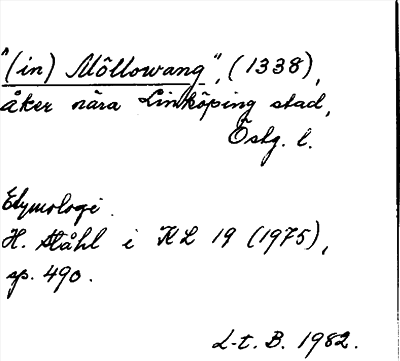 "(in) Möllowang", (1338),
åker nära Linköping stad,
Östg. l.
Etymologi.
H. Ståhl i KL 19 (1975),
sp. 490.
L-t. B. 1982.